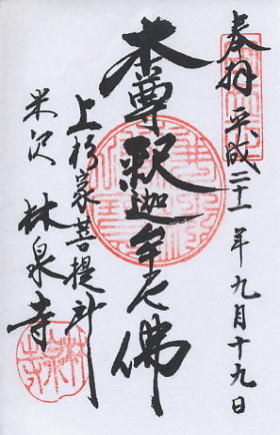 奉拝 平成二十一年九月十九日
本尊釈迦牟尼佛
上杉家菩提所
米沢 林泉寺